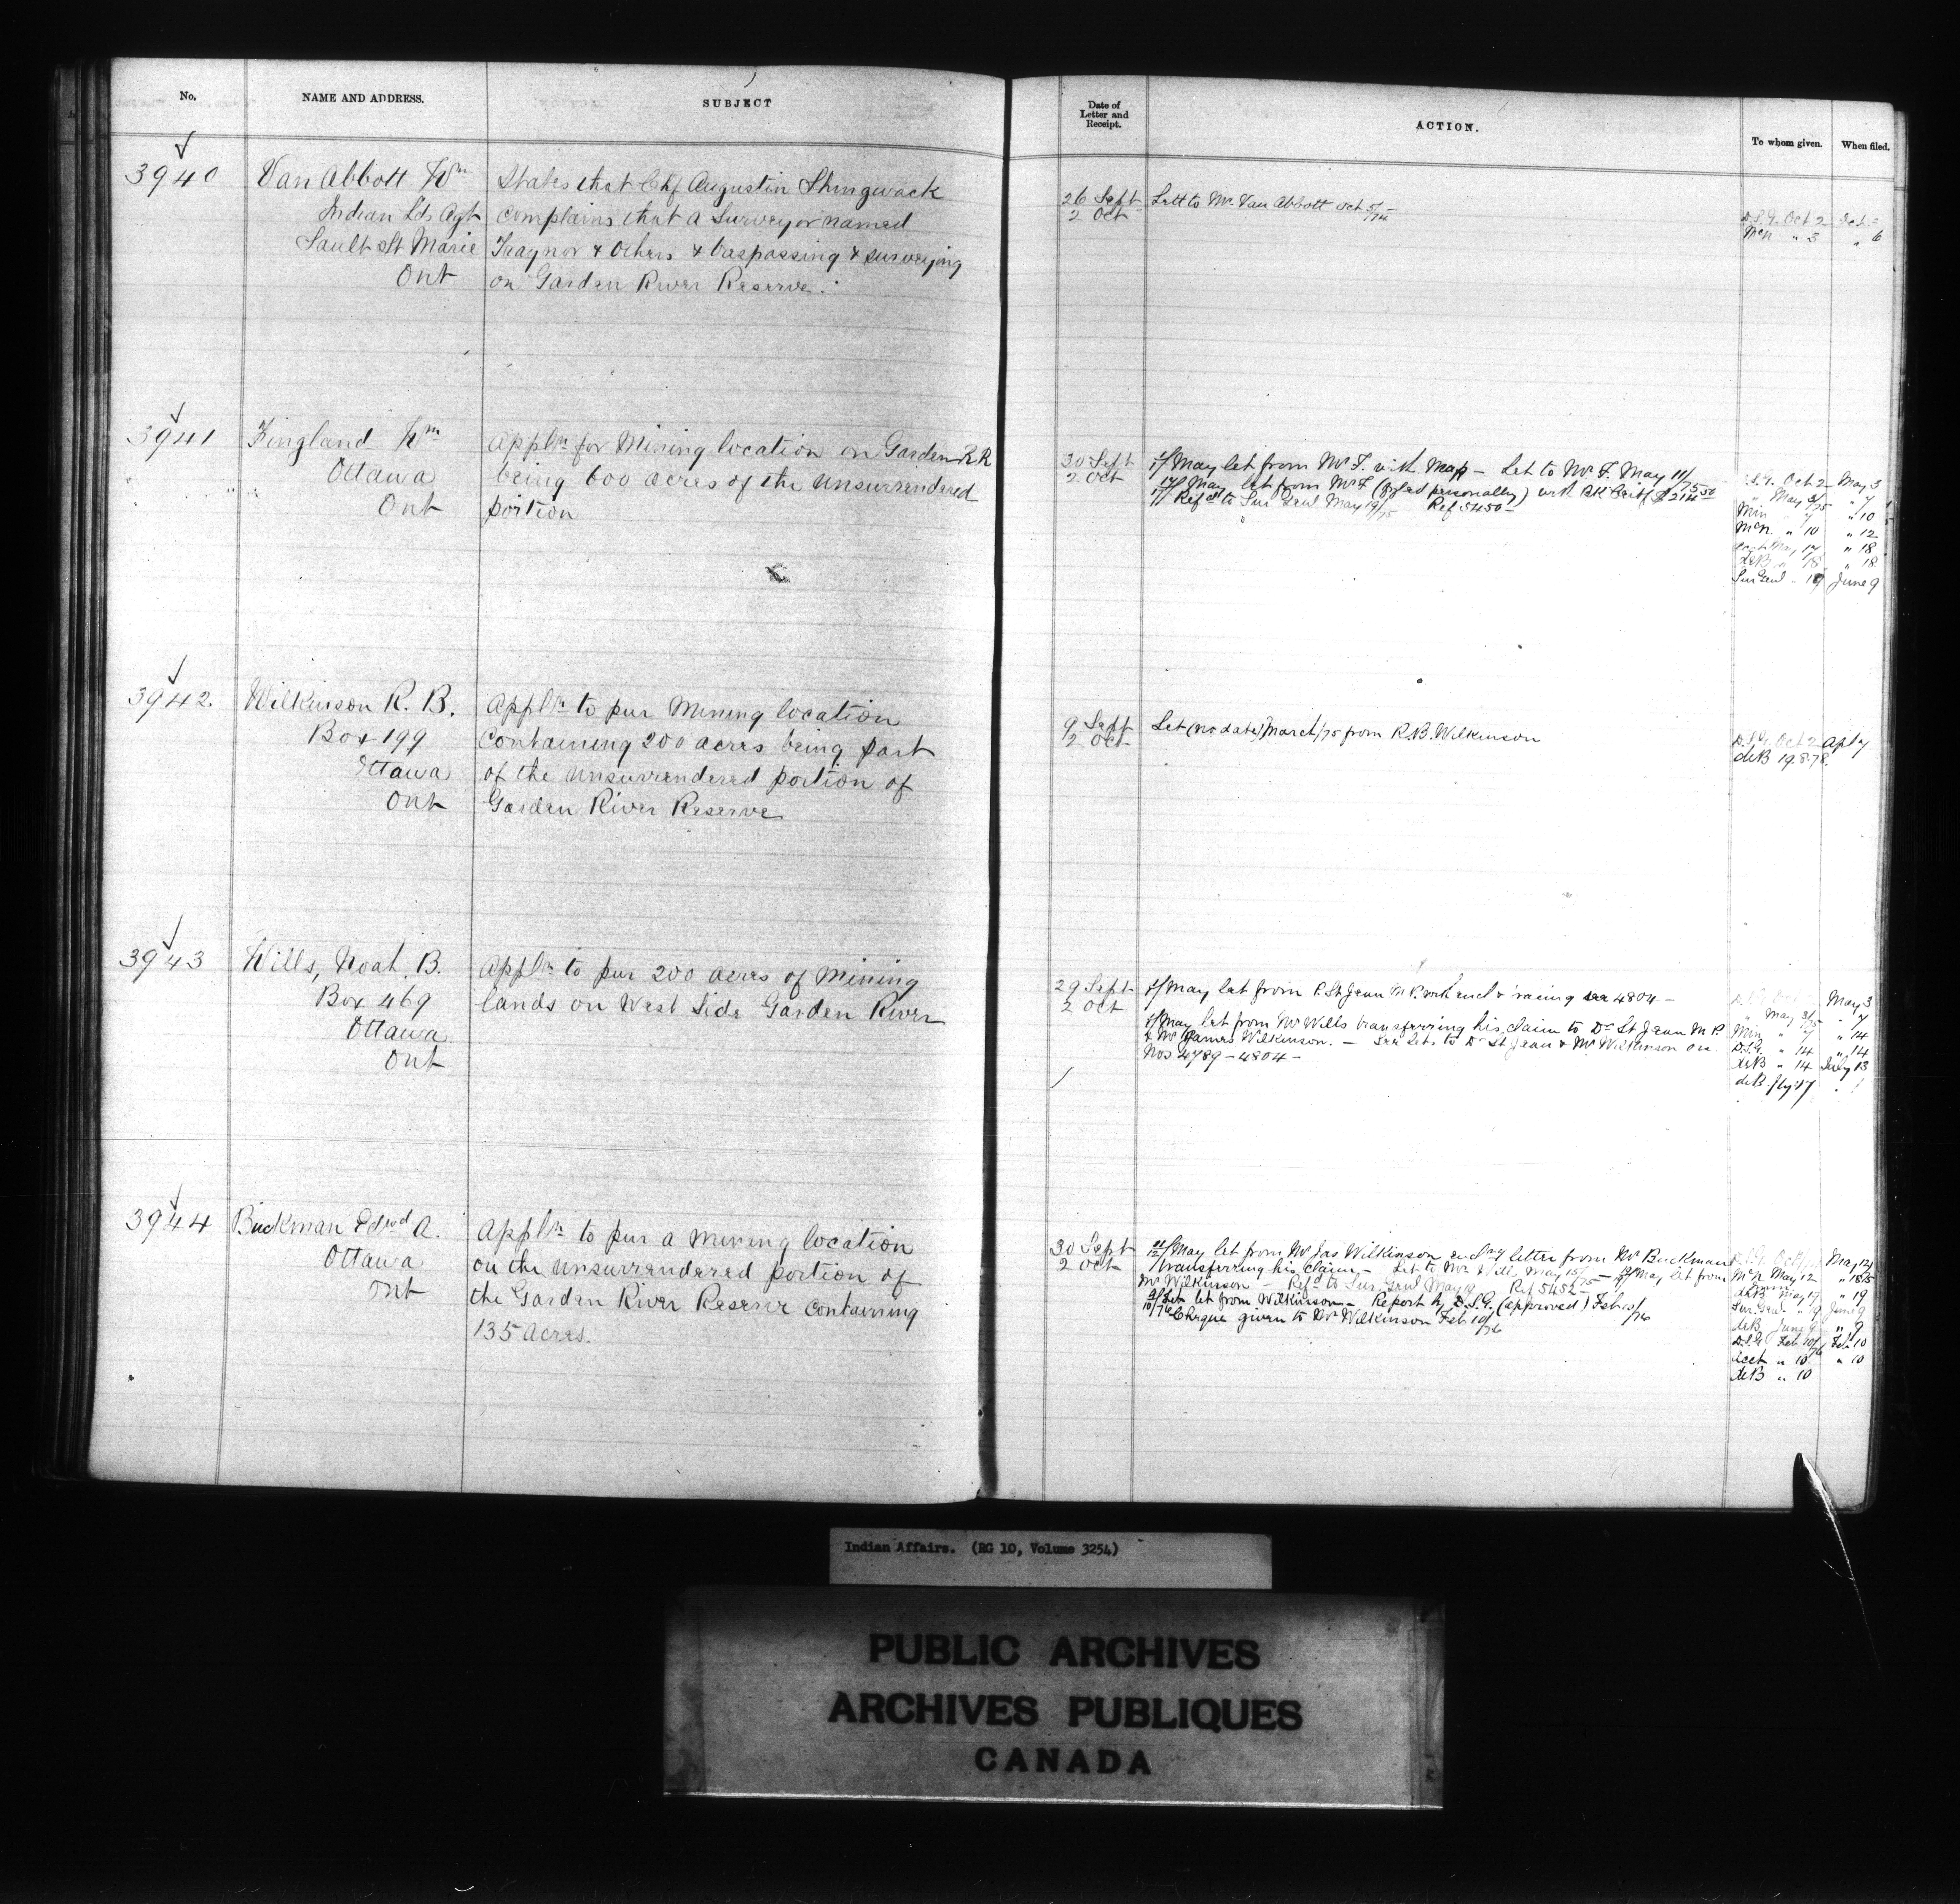 No.
NAME AND ADDRESS.
SUBJECT
Date of
Letter and
Receipt.
ACTION.
To whom given.
When filed.
3940
Van Abbott Wm
Indian Lds Agt
Sault St Marie
Ont
States that Chf Augustin Shingwack
complains that a Surveyor named
Traynor & Others & traspassing & surveying
on Garden River Reserve.
26 Sept
2 Oct
Lett to Mr Van Abbott Oct 5/74
D.S.G. Oct 2
McN " 3 " 6
3941
Fingland Wm
Ottawa
Ont
Appln for Mining location on Garden R R
being 600 acres of the Unsurrendered
portion
30 Sept
2 Oct
May let from Mr F. with Map - Let to Mr F. May 11/75
May let from Mr F (personally) with BK Certf $214.50
Refd to Sur Genl May 19/75 Ref 5450 -
D.S.G. Oct 2 May 3
" May 3/75 " 7
Min " 7 " 10
McN. " 10 " 12
17 " 18
deB " 18 " 18
Sur Genl " 19 June 9
3942.
Wilkinson R. B.
Box 199
Ottawa
Ont
Appln to pur Mining location
containing 200 acres being part
of the Unsurrendered portion of
Garden River Reserve
9 Sept
2 Oct
Let (no date) March/75 from R.B. Wilkinson
D.S.G. Oct 2 Apl 7
deB 19.8.78.
3943
Wills, Noah B.
Box 469
Ottawa
Ont
Appln to pur 200 acres of Mining
lands on West Side Garden River
29 Sept
2 Oct
May let from P. St Jean M.P. with encl & racing see 4804 -
May let from Mr Wills transferring his claim to Dr St Jean M P.
& Mr James Wilkinson. - See Lets to Dr St Jean & Mr Wilkinson on
Nos 4789 - 4804 -
May 3
" May 3/75 " 7
Min " 7 " 14
D.S.G. " 14 " 14
deB " 14 July 13
deB July 17
3944
Buckman Edwd A.
Ottawa
Ont
Appln to pur a Mining location
on the Unsurrendered portion of
the Garden River Reserve containing
135 Acres.
30 Sept
2 Oct
May let from Mr Jas Wilkinson enclng letter from Mr Buckman
transferring his claim - Let to Mr May 15/75 - May let from
Mr Wilkinson - Refd to Sur Genl May 19 Ref 5452 -
Feb let from Wilkinson - Report by D.S.G. (approved) Feb 10/76
Cheque given to Mr Wilkinson Feb 10/76
May 12
McN May 12 " 18/75
deB May 17 " 19
Sur Genl " 19 June 9
deB June 9 " 9
D.S.G. Feb 10/76 Feb 10
Acct " 10 " 10
deB " 10
Indian Affairs. (RG 10, Volume 3254)
PUBLIC ARCHIVES
ARCHIVES PUBLIQUES
CANADA